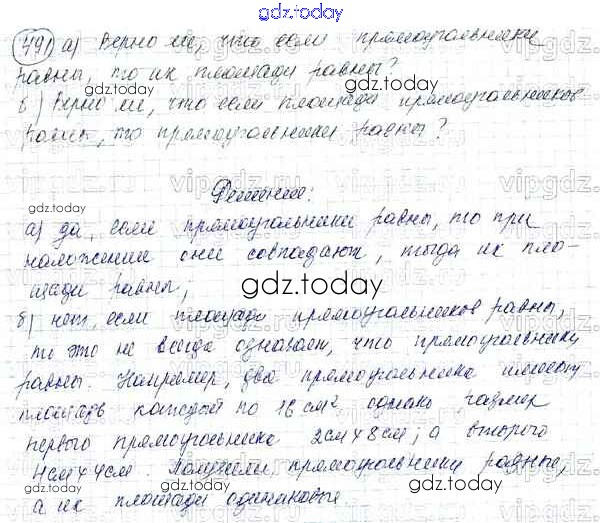 gdz.today
491 а) Верно ли, что если прямоугольники
равны, то их площади равны?
б) Верно ли, что если площади прямоугольников
равны, то прямоугольники равны?
Решение:
а) да, если прямоугольники равны, то при
наложении они совпадают, тогда их пло-
щади равны;
gdz.today
б) нет, если площади прямоугольников равны,
то это не всегда означает, что прямоугольники
равны. Например, два прямоугольника имеют
площадь каждый по 16 см², однако размер
первого прямоугольника 2см×8см; а второго
4см×4см. Получили, прямоугольники разные,
а их площади одинаковые.
gdz.today